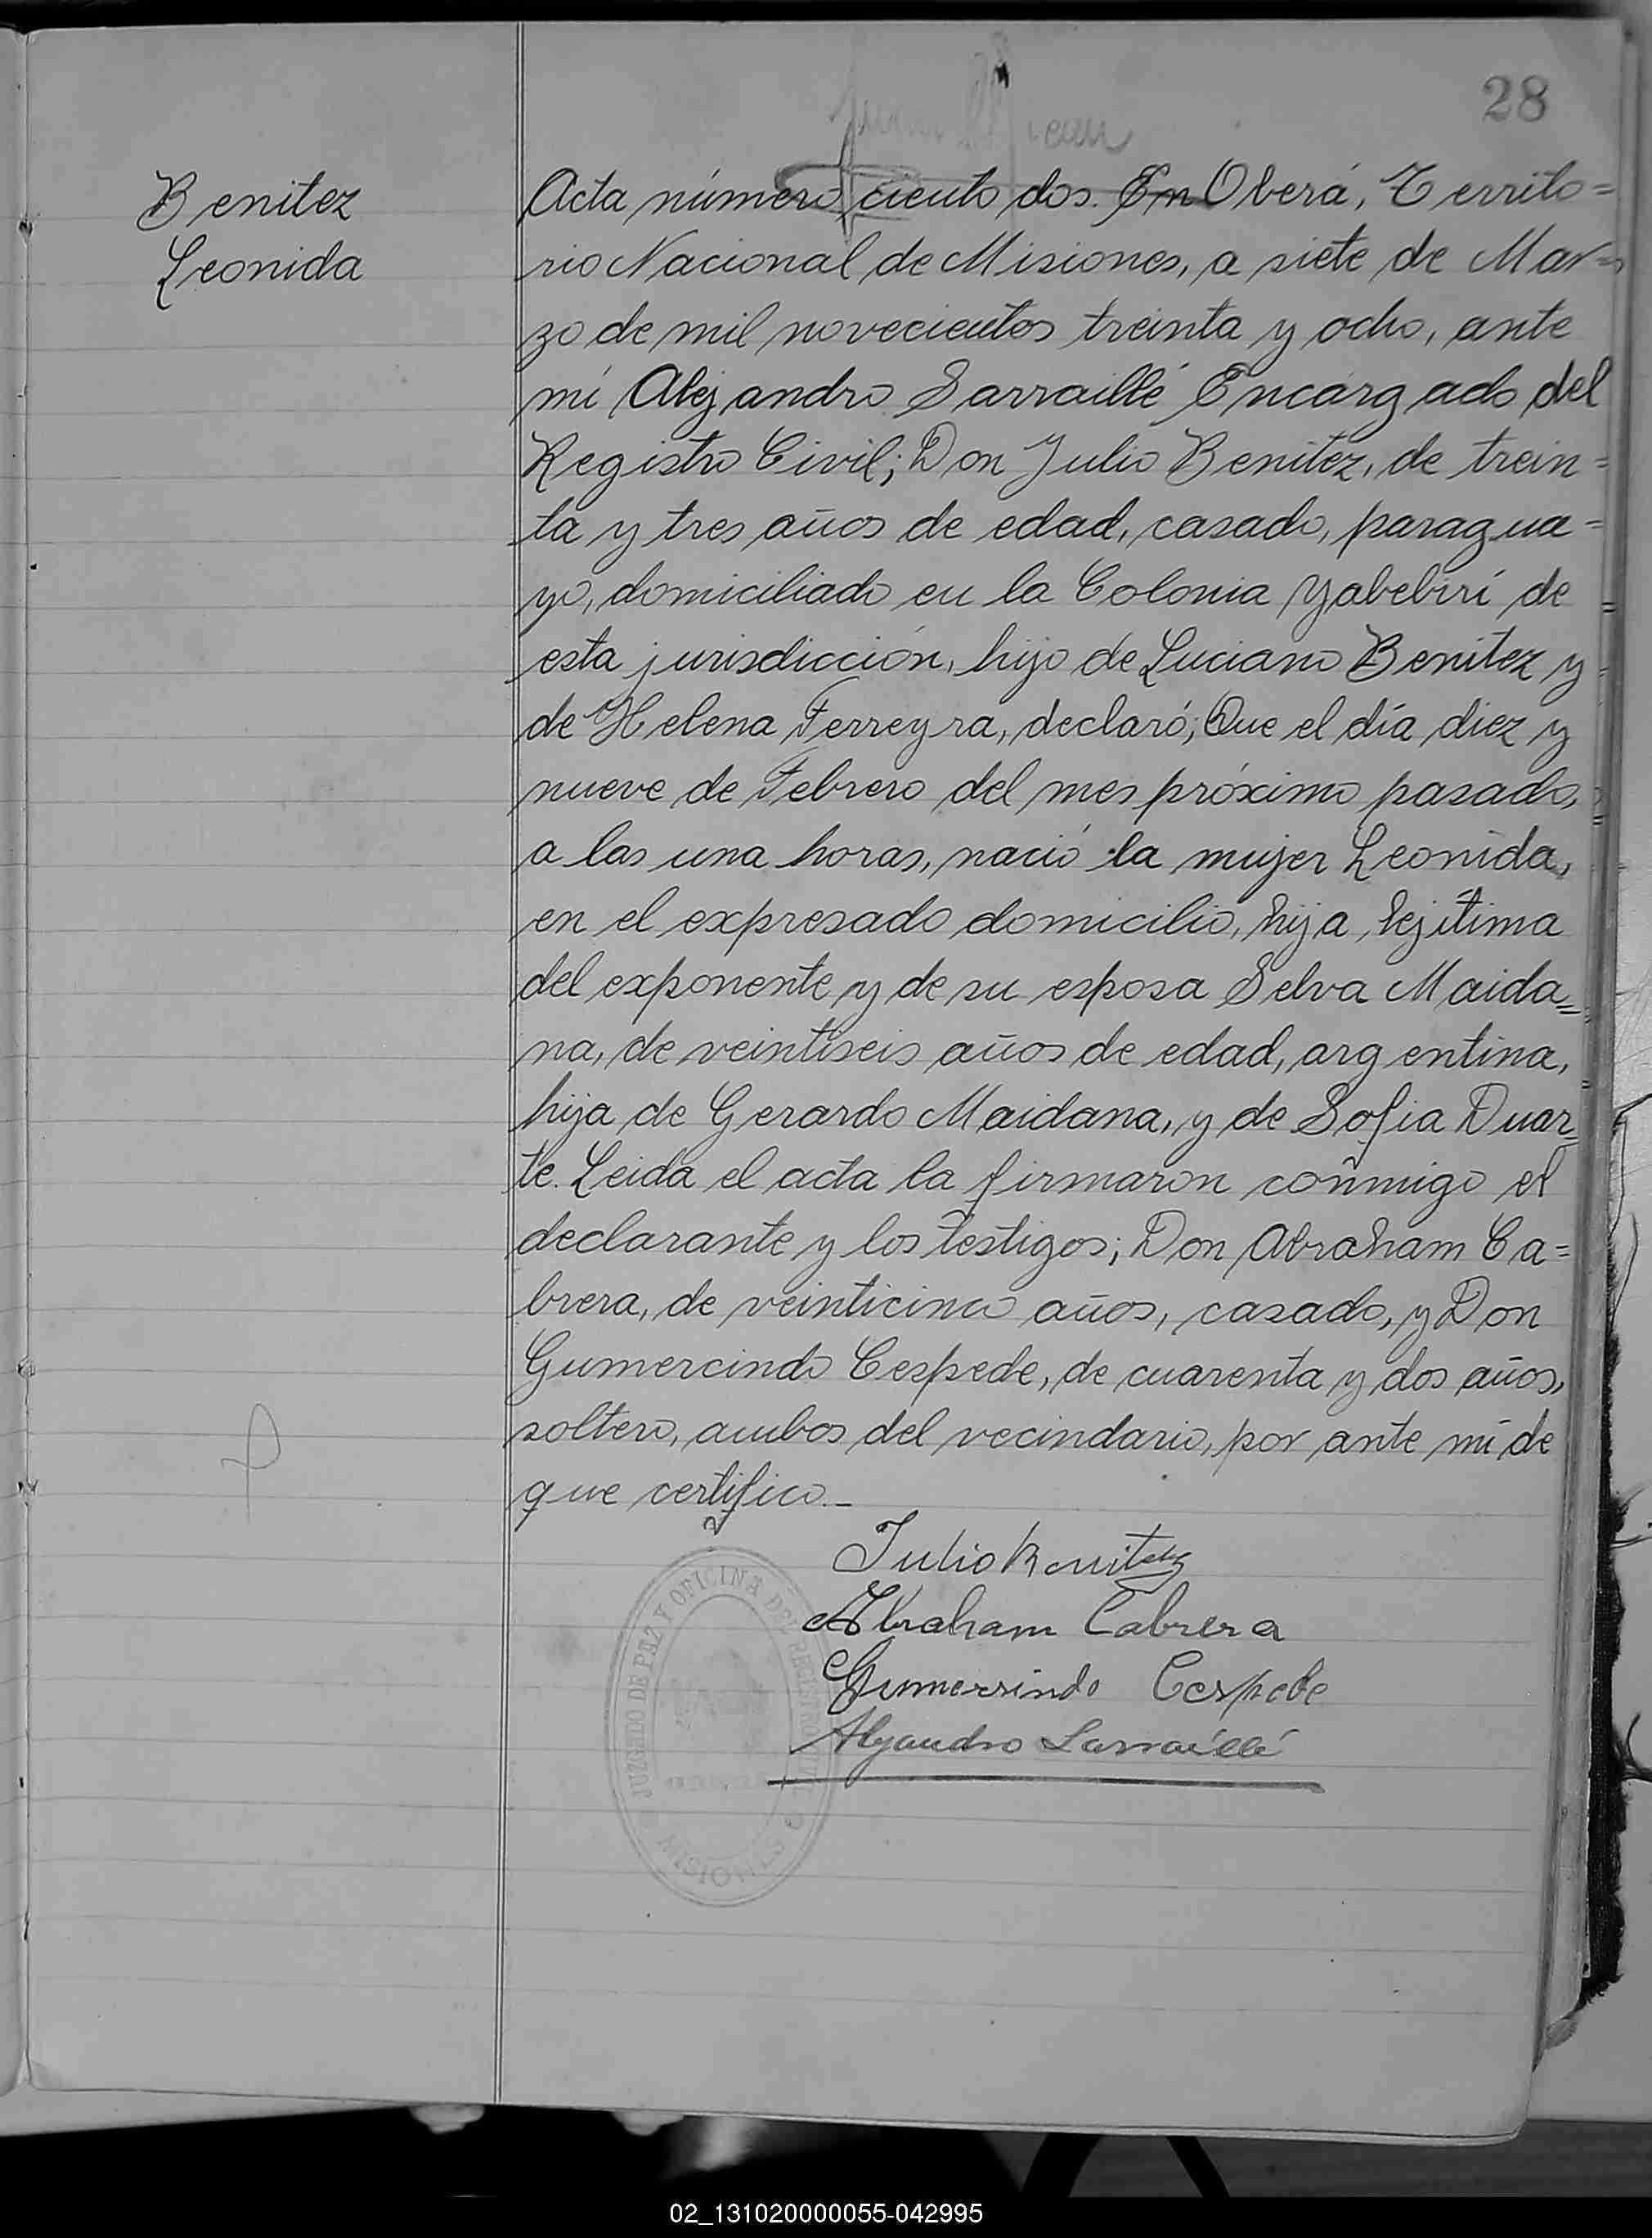 28
Benitez
Leonida
Acta número ciento dos. En Oberá, Territo=
rio Nacional de Misiones, a siete de Mar=
zo de mil novecientos treinta y ocho, ante
mí Alejandro Sarraillé Encargado del
Registro Civil; Don Julio Benitez, de trein=
ta y tres años de edad, casado, paragua=
yo, domiciliado en la Colonia Yabebirí de
esta jurisdicción, hijo de Luciano Benitez y
de Helena Ferreyra, declaró; Que el día diez y
nueve de Febrero del mes próximo pasado,
a las una horas, nació la mujer Leonida,
en el expresado domicilio, hija lejítima
del exponente y de su esposa Selva Maida=
na, de veintiseis años de edad, argentina,
hija de Gerardo Maidana, y de Sofia Duar=
te. Leida el acta la firmaron conmigo el
declarante y los testigos; Don Abraham Ca=
brera, de veinticinco años, casado, y Don
Gumercindo Cespede, de cuarenta y dos años,
soltero, ambos del vecindario, por ante mí de
que certifico._
Julio Benitez
Abraham Cabrera
Gumersindo Cespede
Alejandro Sarraillé
JUZGADO DE PAZ Y OFICINA DEL REGISTRO CIVIL
MISIONES
02_131020000055-042995